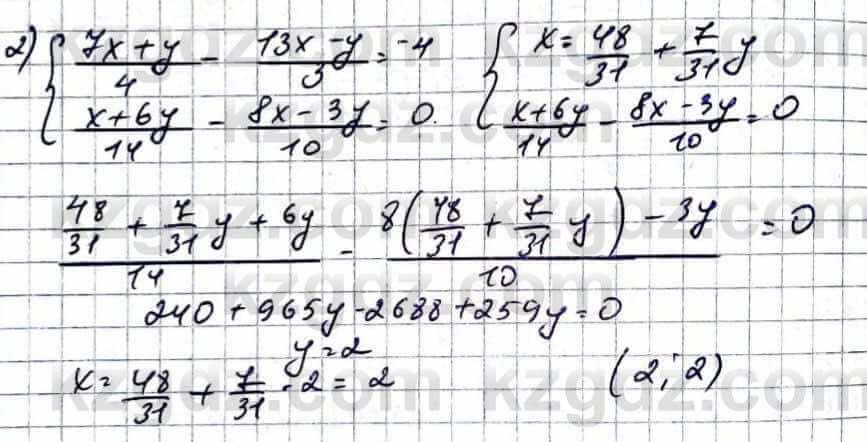 2) { (7x+y)/4 - (13x-y)/3 = -4   { x = 48/31 + 7/31 y
(x+6y)/14 - (8x-3y)/10 = 0.   (x+6y)/14 - (8x-3y)/10 = 0
(48/31 + 7/31 y + 6y)/14 - (8(48/31 + 7/31 y) - 3y)/10 = 0
240 + 965y - 2688 + 259y = 0
y = 2
x = 48/31 + 7/31 · 2 = 2   (2; 2)
kzgdz.com